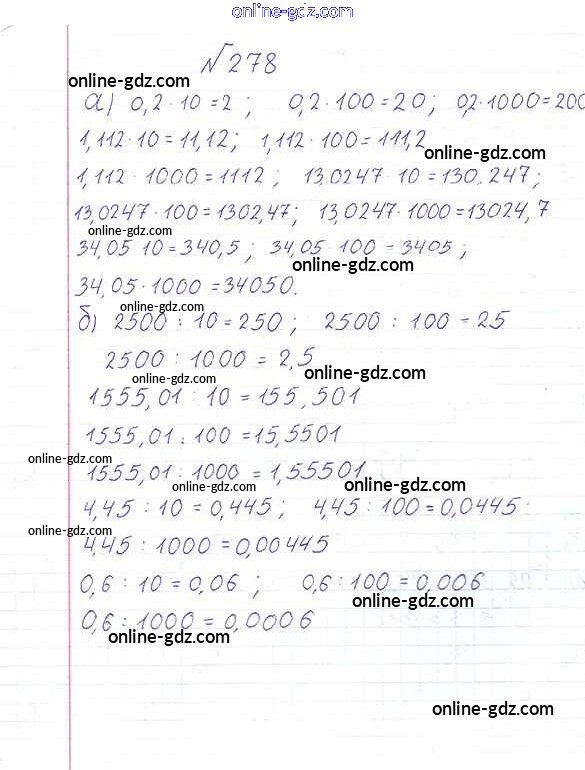 online-gdz.com
№278
online-gdz.com
а) 0,2 · 10 = 2 ; 0,2 · 100 = 20 ; 0,2 · 1000 = 200
1,112 · 10 = 11,12 ; 1,112 · 100 = 111,2
online-gdz.com
1,112 · 1000 = 1112 ; 13,0247 · 10 = 130,247 ;
13,0247 · 100 = 1302,47 ; 13,0247 · 1000 = 13024,7
online-gdz.com
34,05 · 10 = 340,5 ; 34,05 · 100 = 3405 ;
online-gdz.com
34,05 · 1000 = 34050.
online-gdz.com
б) 2500 : 10 = 250 ; 2500 : 100 = 25
2500 : 1000 = 2,5
online-gdz.com
online-gdz.com
1555,01 : 10 = 155,501
1555,01 : 100 = 15,5501
online-gdz.com
1555,01 : 1000 = 1,55501
online-gdz.com
online-gdz.com
4,45 : 10 = 0,445 ; 4,45 : 100 = 0,0445
online-gdz.com
4,45 : 1000 = 0,00445
0,6 : 10 = 0,06 ; 0,6 : 100 = 0,006
online-gdz.com
0,6 : 1000 = 0,0006
online-gdz.com
online-gdz.com